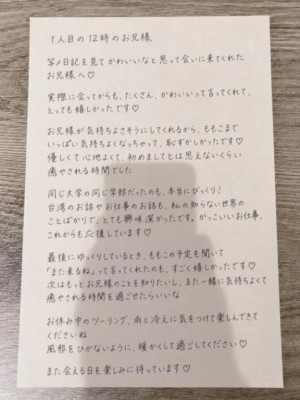 1人目の12時のお兄様
写メ日記を見てかわいいなと思って会いに来てくれた
お兄様へ♡
実際に会ってからも、たくさん、かわいいって言ってくれて、
とっても嬉しかったです♡
お兄様が気持ちよさそうにしてくれるから、ももこまで
いっぱい気持ちよくなっちゃって、恥ずかしかったです♡
優しくて心地よくて、初めましてとは思えないくらい
癒やされる時間でした
同じ大学の同じ学部だったのも、本当にびっくり!
台湾のお話やお仕事のお話も、私の知らない世界の
ことばかりで、とても興味深かったです。かっこいいお仕事、
これからも応援しています♡
最後にゆっくりしているとき、ももこの予定を聞いて
「また来るね」って言ってくれたのも、すごく嬉しかったです♡
次はもっとお兄様のことを知りたいし、また一緒に気持ちよくて
癒やされる時間を過ごせたらいいな
お休み中のツーリング、雨と冷えに気をつけて楽しんできて
くださいね
風邪をひかないように、暖かくして過ごしてください♡
また会える日を楽しみに待っています♡